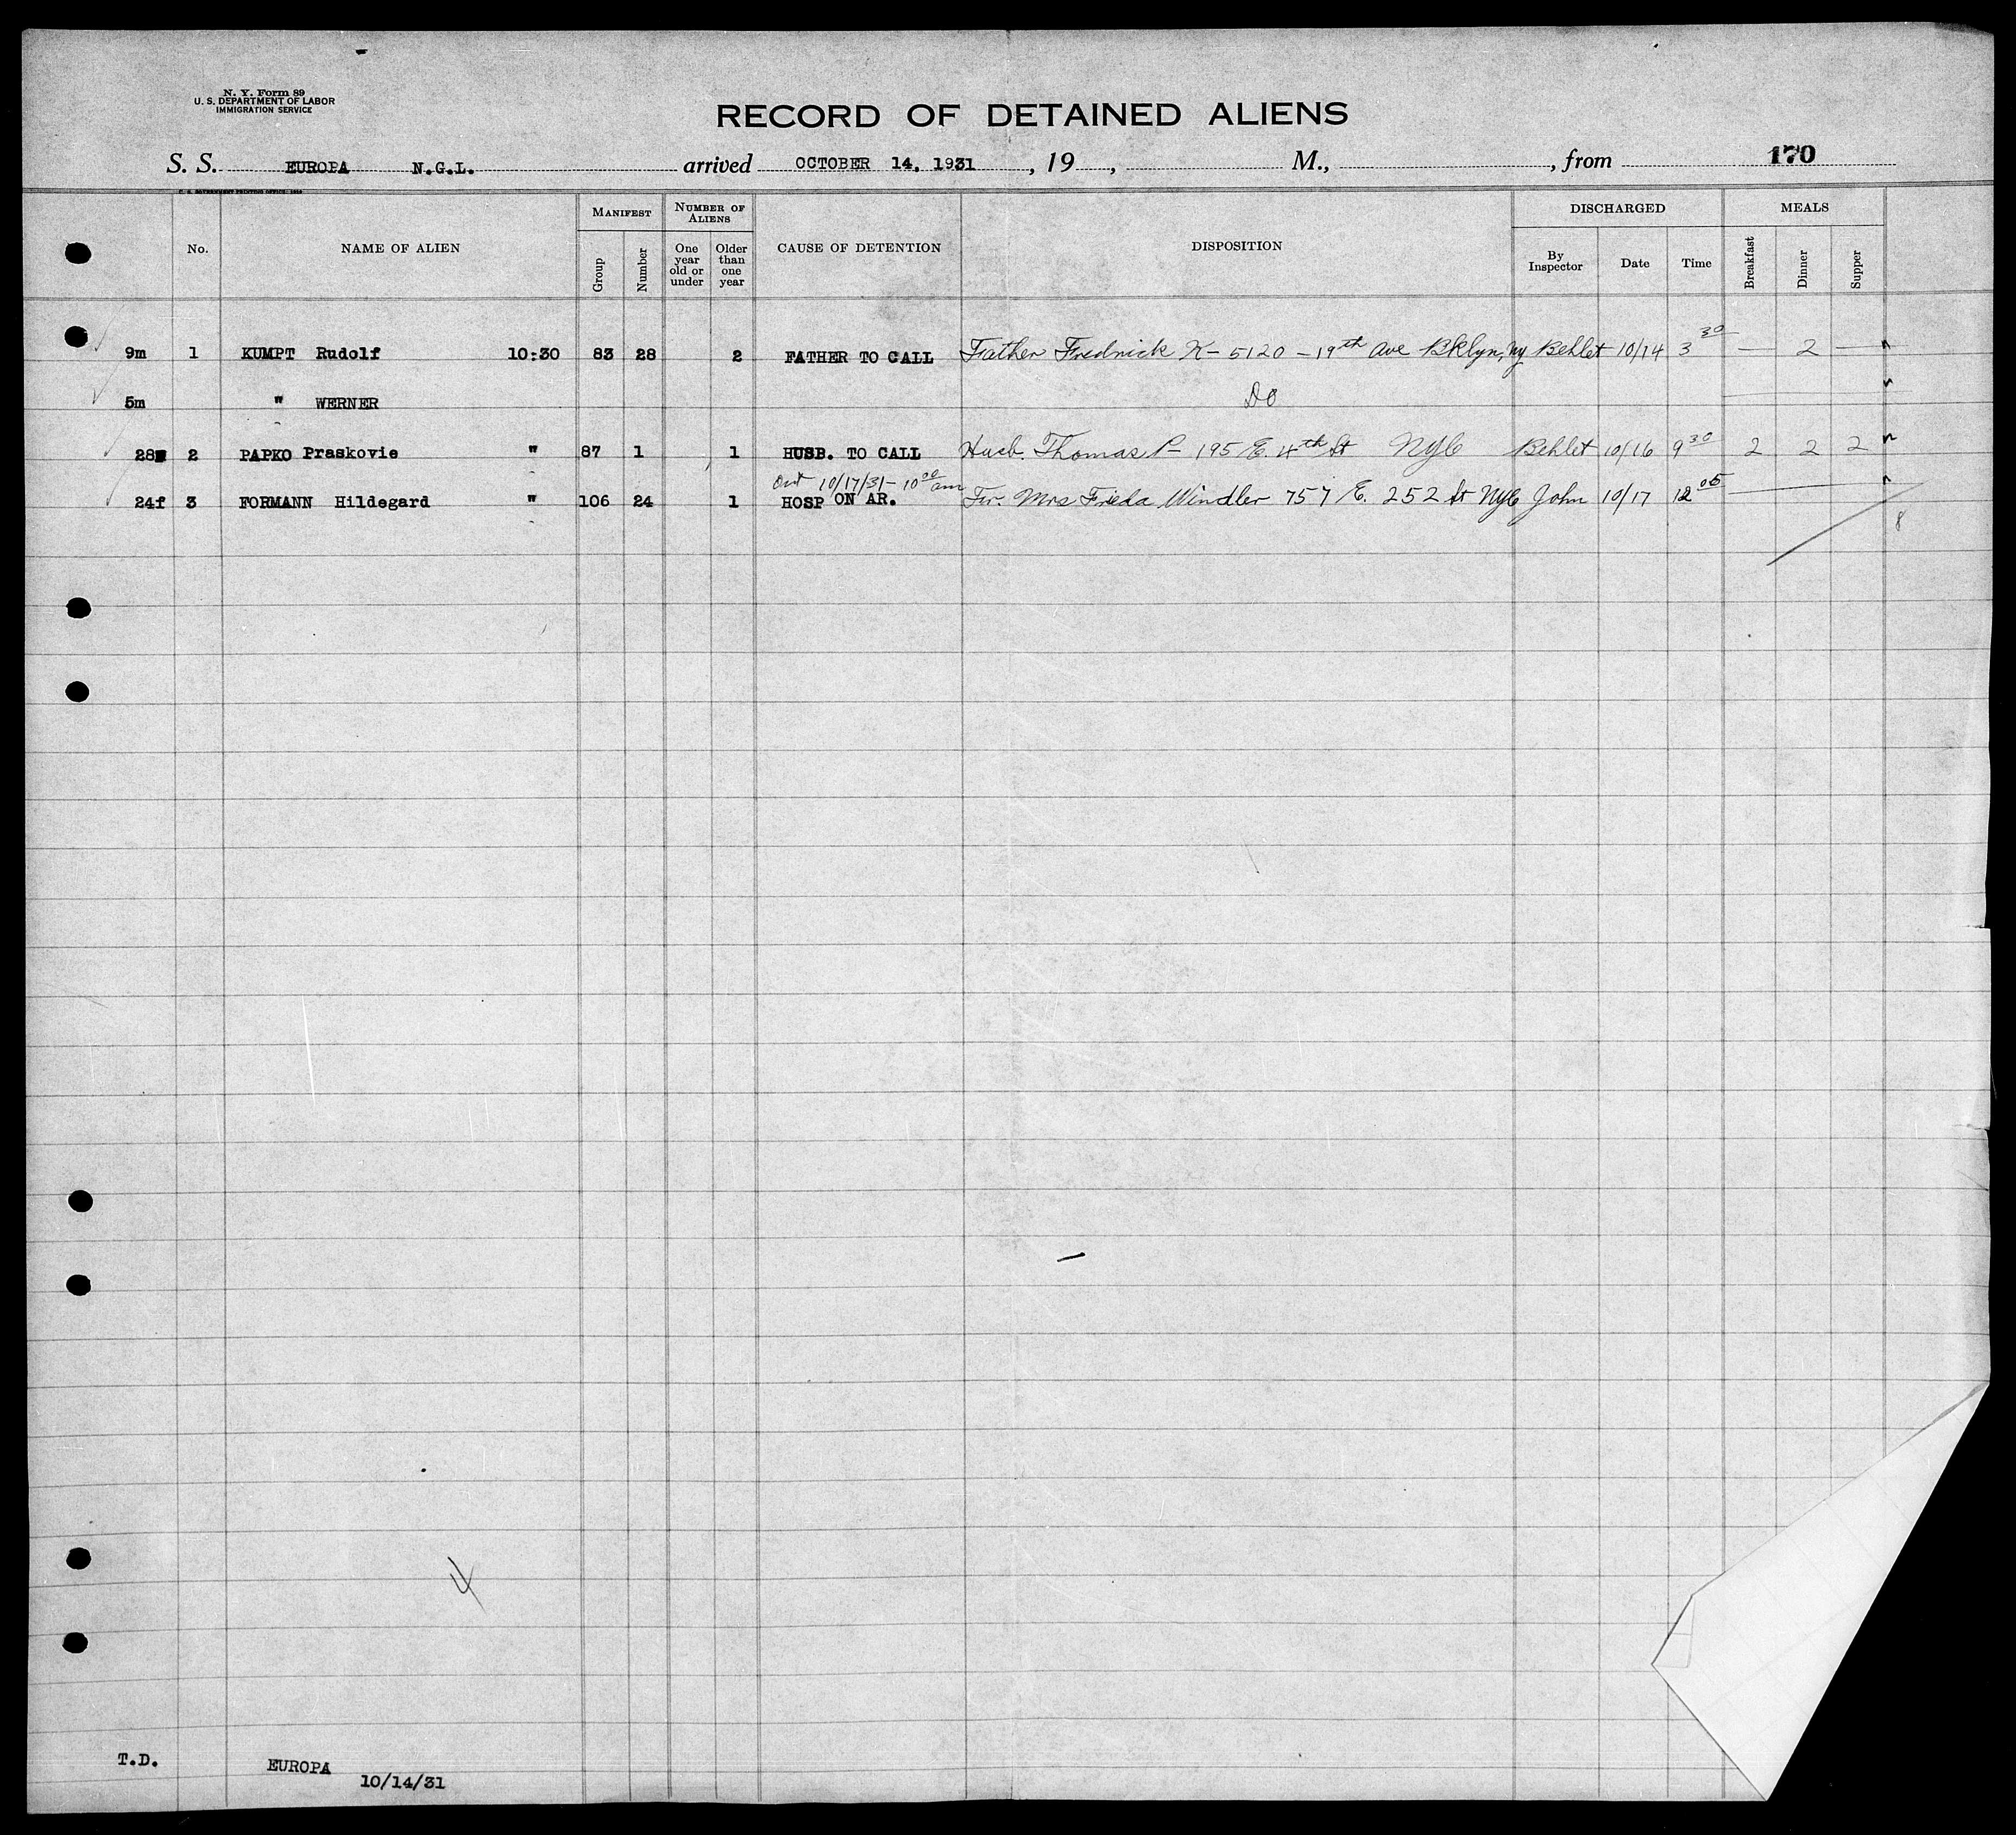 N. Y. Form 89
U. S. DEPARTMENT OF LABOR
IMMIGRATION SERVICE
RECORD OF DETAINED ALIENS
S. S. EUROPA N.G.L. arrived OCTOBER 14, 1931, 19, M., , from 170
MANIFEST NUMBER OF ALIENS DISCHARGED MEALS
No. NAME OF ALIEN Group Number One year old or under Older than one year CAUSE OF DETENTION DISPOSITION By Inspector Date Time Breakfast Dinner Supper
9m 1 KUMPT Rudolf 10:30 83 28 2 FATHER TO CALL Father Fredrick K- 5120 - 19th Ave Bklyn, Ny Behlet 10/14 3 30 — 2 —
5m " WERNER DO
28 2 PAPKO Praskovie " 87 1 1 HUSB. TO CALL Husb. Thomas P- 195 E. 4th St NYC Behlet 10/16 9 30 2 2 2
Out 10/17/31 - 10 00 am
24f 3 FORMANN Hildegard " 106 24 1 HOSP ON AR. Fr. Mrs Frieda Windler 757 E. 252 St NYC John 10/17 12 05
8
4
T.D. EUROPA
10/14/31